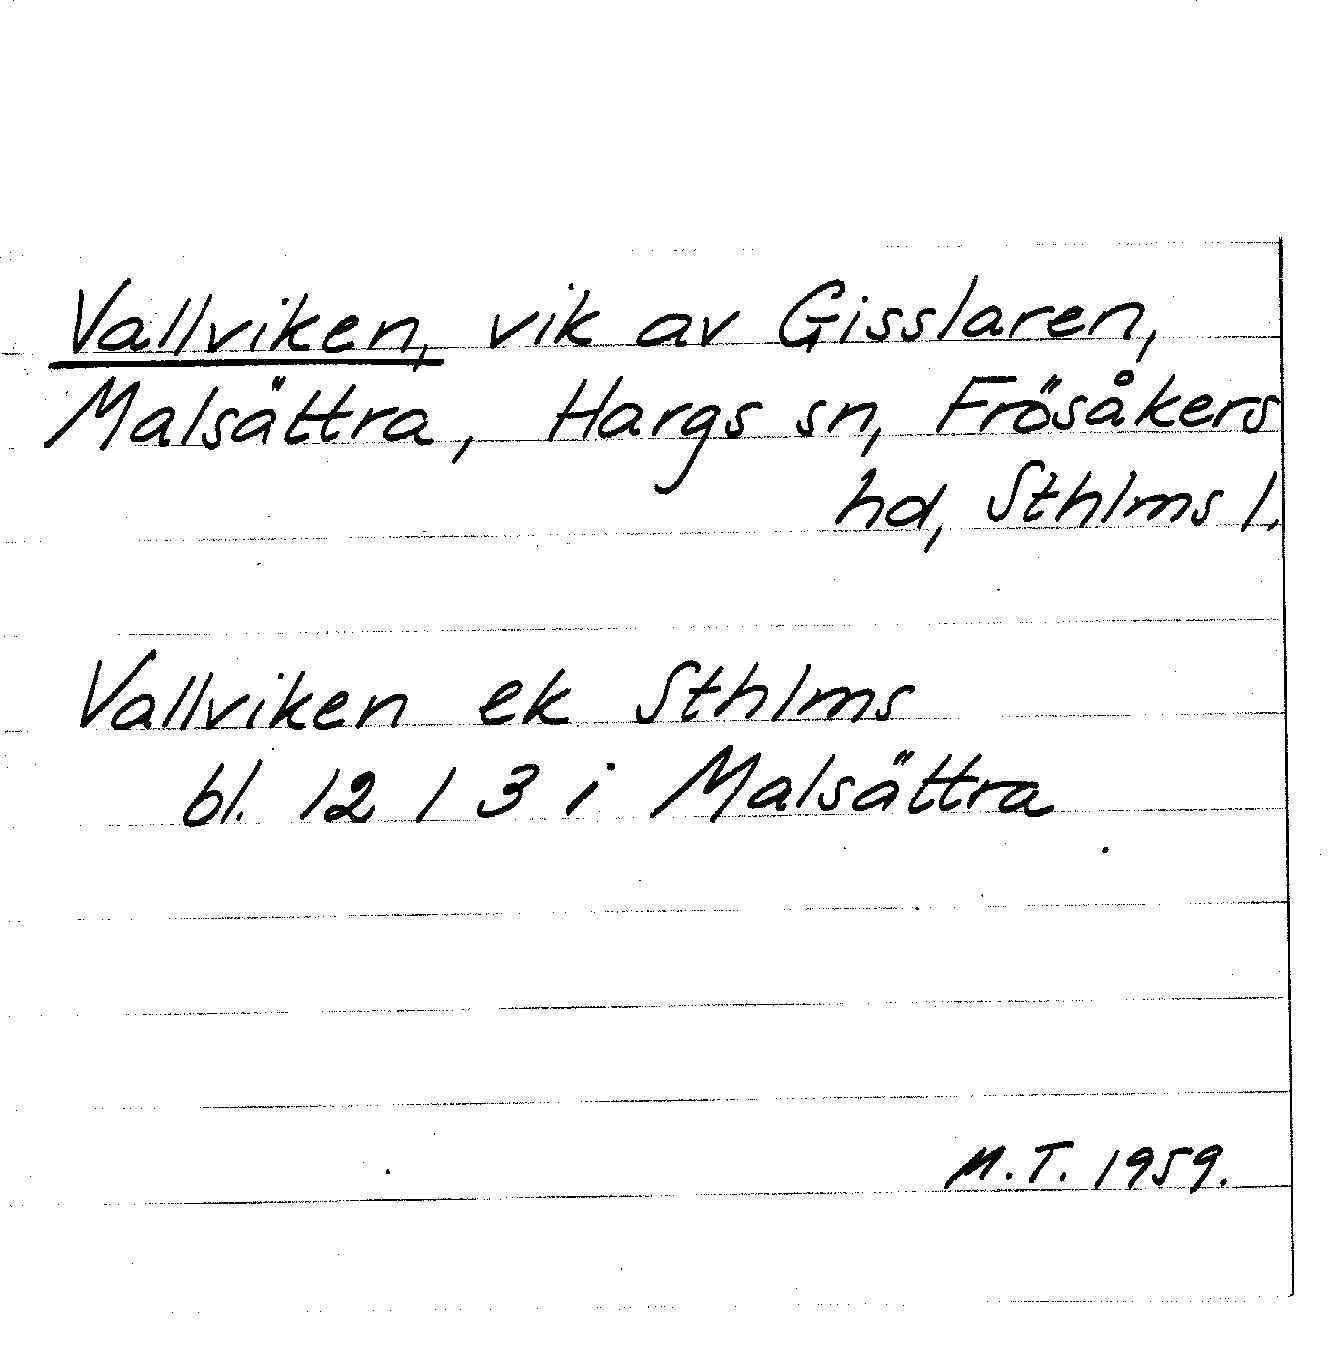 Vallviken, vik av Gisslaren,
Malsättra, Hargs sn, Frösåkers
hd, Sthlms l.
Vallviken ek Sthlms
bl. 12 1 3 i Malsättra
M.T. 1959.